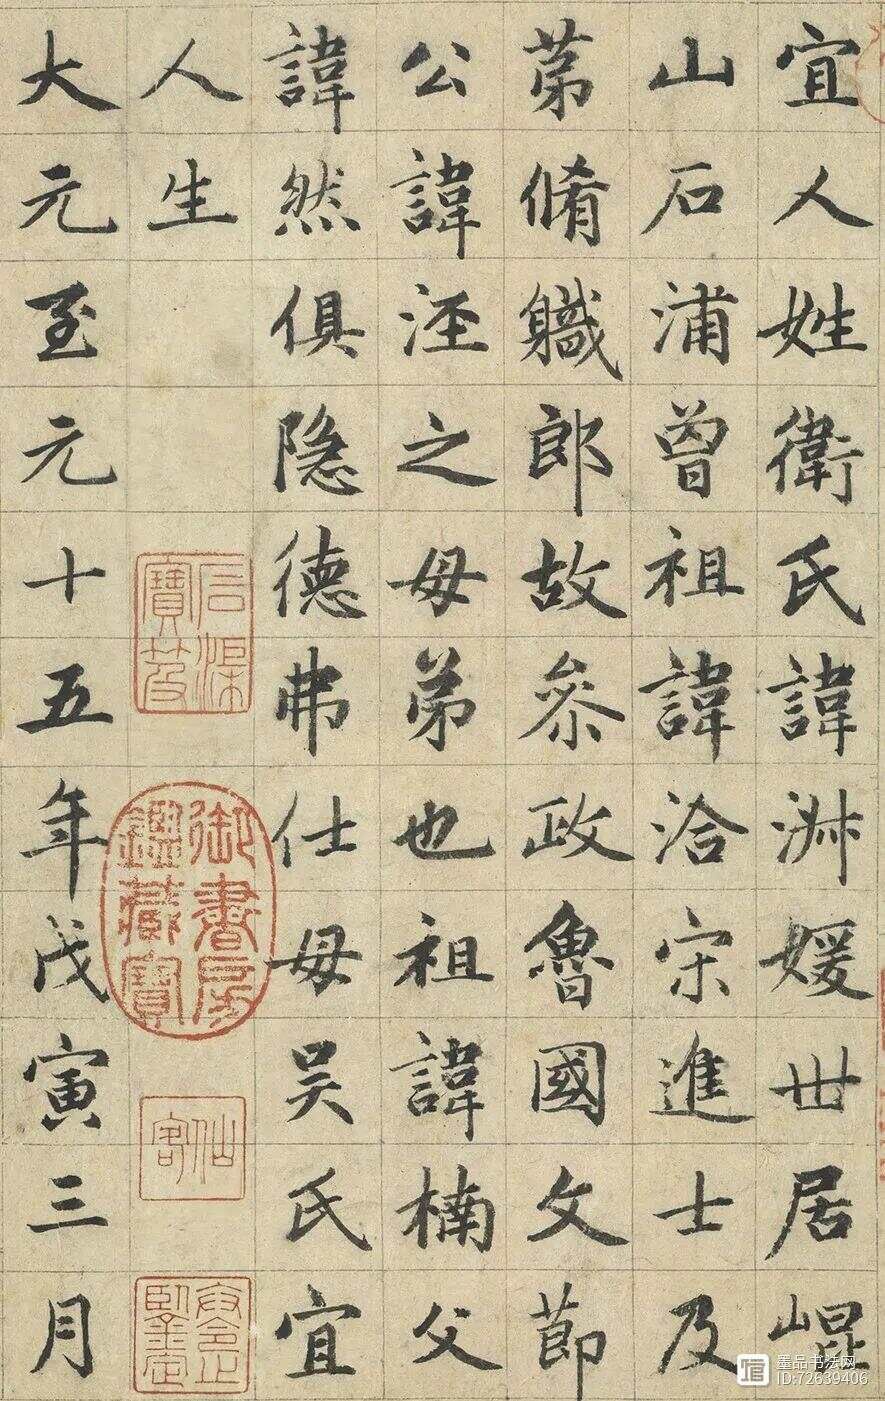 宜人姓衛氏諱淑媛世居崐
山石浦曾祖諱洽宋進士及
苐脩軄郎故叅政魯國文莭
公諱涇之母弟也祖諱楠父
諱然俱隐德弗仕母吴氏宜
人生
大元至元十五年戊寅三月
石渠寶笈
御書房鑑藏寶
仙客
墨品书法网
ID:72639406